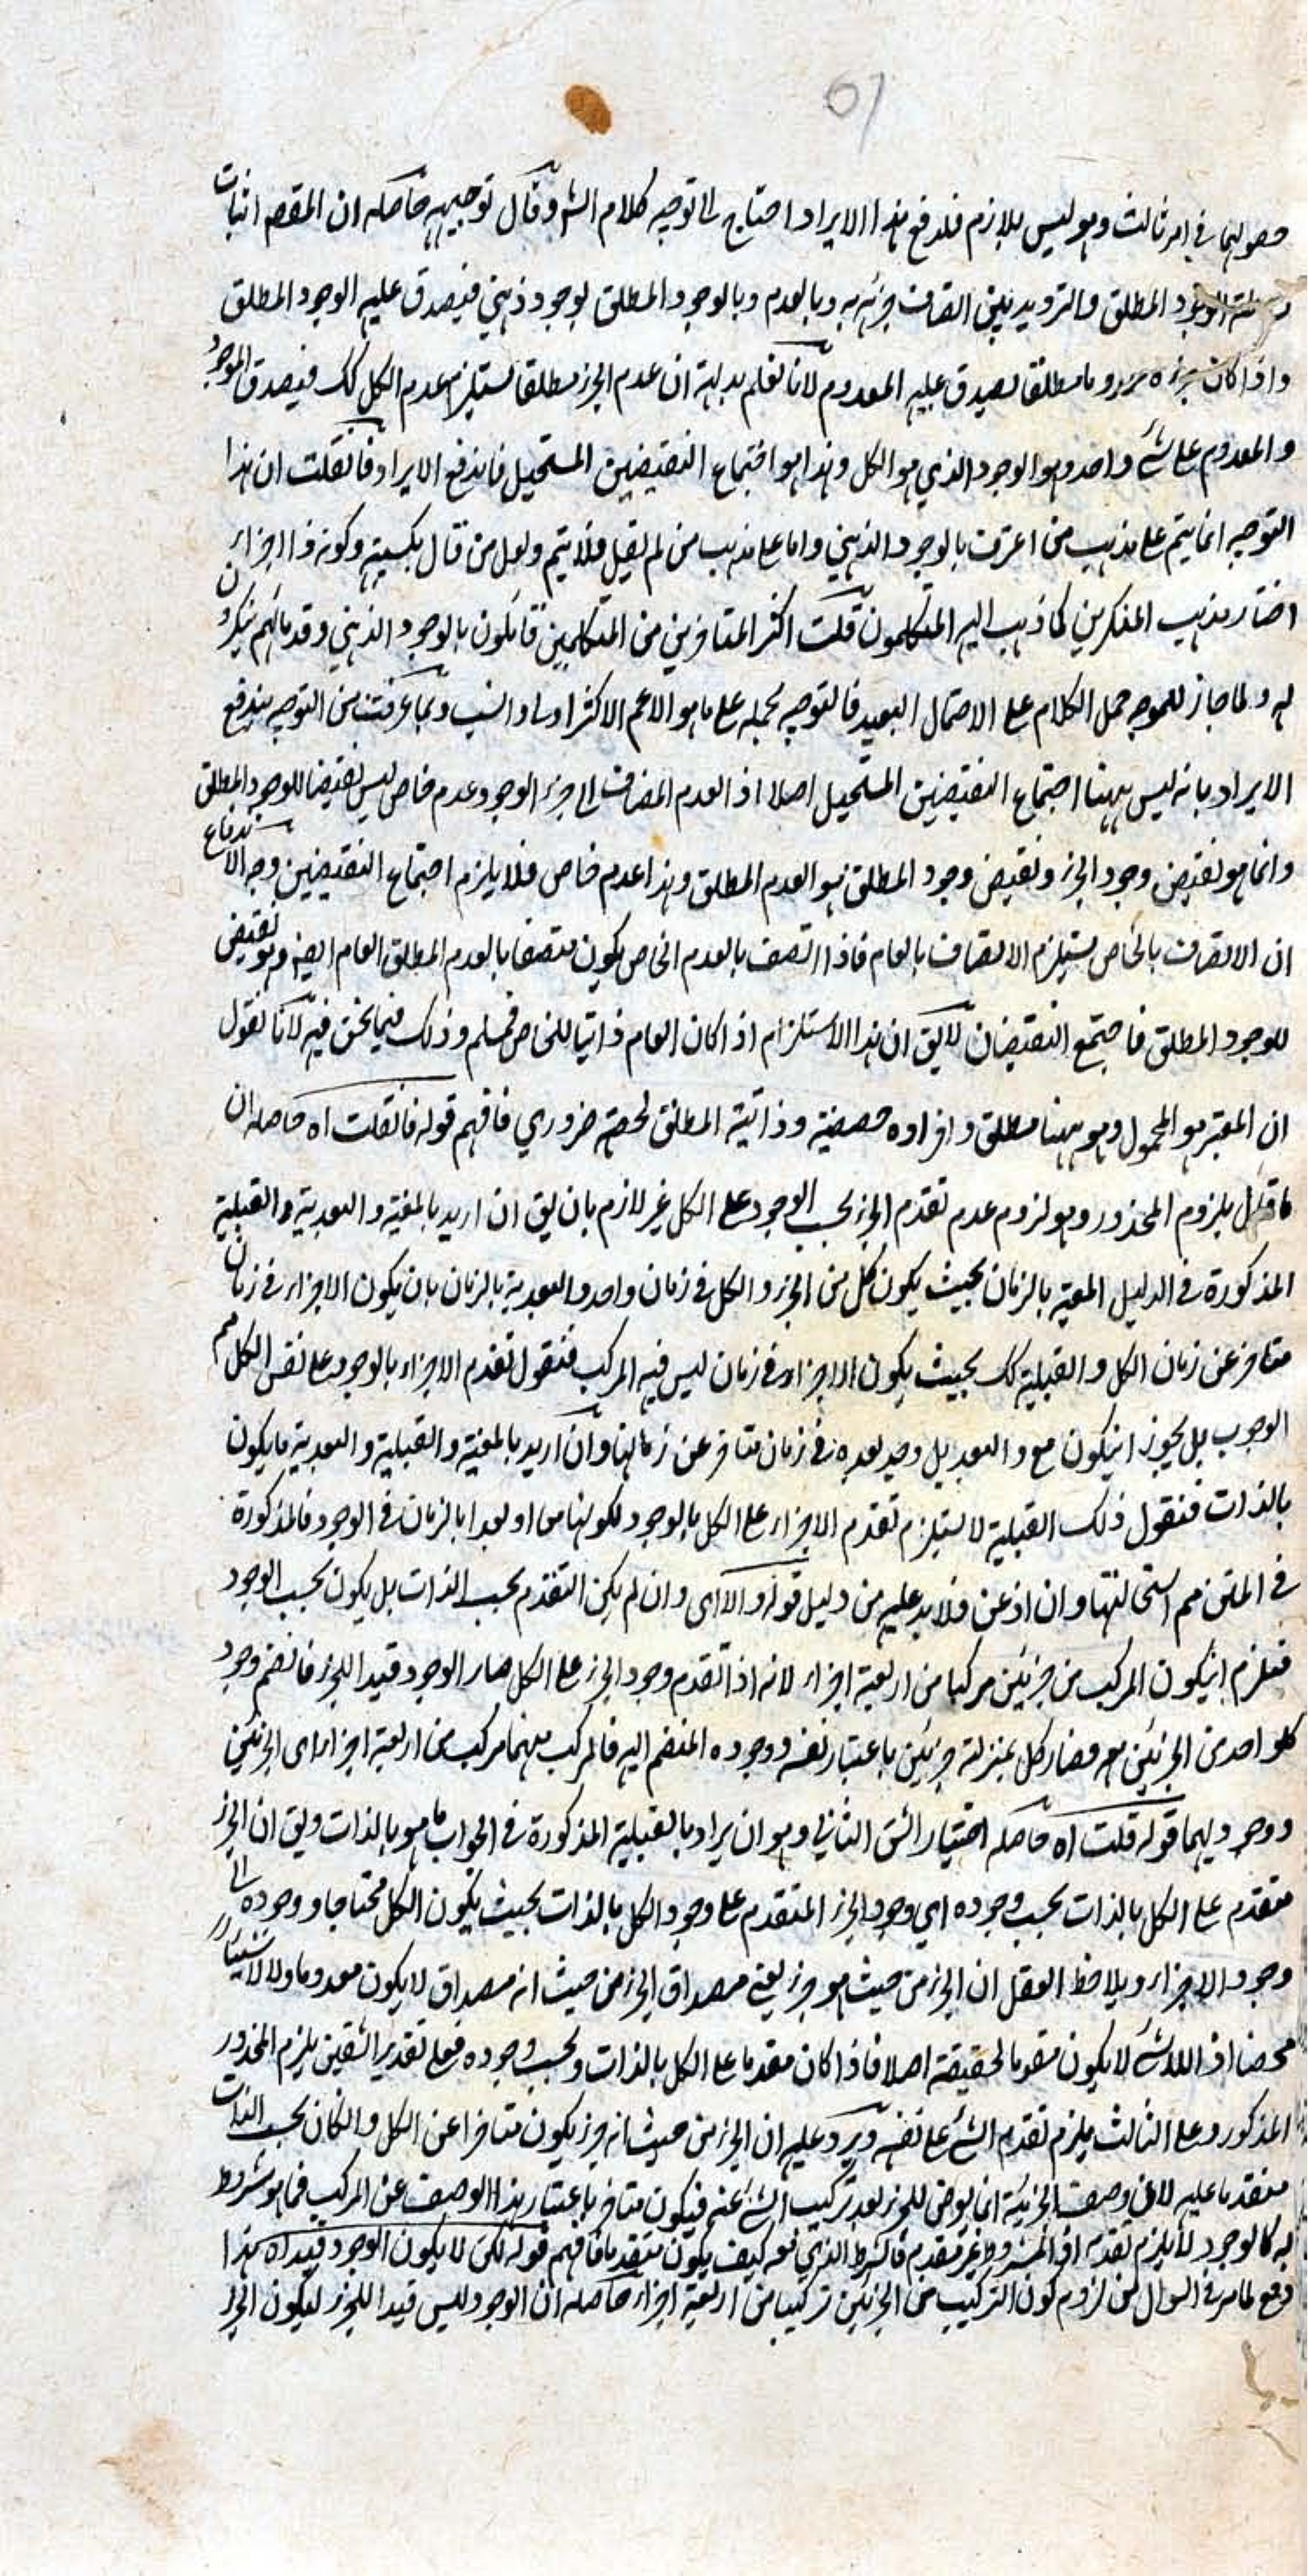 حصولها في امر ثالث وهو ليس بلازم فلدفع هذا الايراد احتاج الى توجيه كلام الش وقال توجيهه حاصله ان المقصد اثبات
الوجود المطلق والترديد بين اتصاف جزئه به وبالعدم وبالوجود المطلق لوجود ذهني فيصدق عليه الوجود المطلق
واذا كان جزءه معدوما مطلقا يصدق عليه المعدوم لانا نعلم بديهة ان عدم الجزء مطلقا يستلزم عدم الكل كك فيصدق الموجود
والمعدوم على شئ واحد وهو الوجود الذي هو الكل وهذا هو اجتماع النقيضين المستحيل فاندفع الايراد فانقلت ان هذا
التوجيه انما يتم على مذهب من اعترف بالوجود الذهني واما على مذهب من لم يقل فلا يتم ولعل من قال بكسبيته وكونه ذا اجزاء
اختار مذهب المنكرين كما ذهب اليه المتكلمون قلت اكثر المتاخرين من المتكلمين قائلون بالوجود الذهني وقدمائهم ينكرون
له ولما جاز للموجه حمل الكلام على الاحتمال البعيد فالتوجيه بحمله على ما هو الاعم الاكثر اولى وانسب وبما عرفت من التوجيه يندفع
الايراد بانه ليس ههنا اجتماع النقيضين المستحيل اصلا اذ العدم المضاف الى جزء الوجود عدم خاص ليس نقيضا للوجود المطلق
وانما هو نقيض وجود الجزء ونقيض وجود المطلق هو العدم المطلق وهذا عدم خاص فلا يلزم اجتماع النقيضين وجه الاندفاع
ان الاتصاف بالخاص يستلزم الاتصاف بالعام فاذا اتصف بالعدم الخاص يكون متصفا بالعدم المطلق العام ايضه وهو نقيض
للوجود المطلق فاجتمع النقيضان لايق ان هذا الاستلزام اذا كان العام ذاتيا للخاص فمسلم وذلك فيما نحن فيه لانا نقول
ان المعتبر هو المحمول وهو ههنا مطلق وافراده حصصية وذاتية المطلق لحصته ضروري فافهم قوله فانقلت اه حاصله ان
ما قيل يلزوم المحذور وهو لزوم عدم تقدم الجزء بحسب الوجود على الكل غير لازم بان يق ان اريد بالمعية والبعدية والقبلية
المذكورة في الدليل المعية بالزمان بحيث يكون كل من الجزء والكل في زمان واحد والبعدية بالزمان بان يكون الاجزاء في زمان
متاخر عن زمان الكل والقبلية كك بحيث يكون الاجزاء في زمان ليس فيه المركب فنقول تقدم الاجزاء بالوجود على نفس الكل مم
الوجوب بل يجوز انيكون مع والبعد بل وجد بعده في زمان متاخر عن زمانها وان اريد بالمعية والقبلية والبعدية ما يكون
بالذات فنقول ذلك القبلية لا يستلزم تقدم الاجزاء على الكل بالوجود لكونها معا او بعدا بالزمان في الوجود فالمذكورة
في المتن مم استحالتها وان اذعن فلا بد عليه من دليل قوله والا اى وان لم يكن التقدم بحسب الذات بل يكون بحسب الوجود
فيلزم انيكون المركب من جزئين مركبا من اربعة اجزاء لانه اذا تقدم وجود الجزء على الكل صار الوجود قيدا للجزء فانضم وجود
كلواحد من الجزئين معه فصار كل بمنزلة جزئين باعتبار نفسه ووجوده المنضم اليه فالمركب منهما مركب من اربعة اجزاء اى الجزئين
ووجوديهما قوله قلت اه حاصله اختيار الشق الثاني وهو ان يراد بالقبلية المذكورة في الجواب ما هو بالذات ويق ان الجزء
متقدم على الكل بالذات بحسب وجوده اي وجود الجزء المتقدم على وجود الكل بالذات بحيث يكون الكل محتاجا ووجوده الى
وجود الاجزاء ويلاحظ العقل ان الجزء من حيث هو جزء يعني مصداق الجزء من حيث انه مصداق لا يكون معدوما ولا لا شيئا
محضا اذ اللاشئ لا يكون مقوما لحقيقة اصلا فاذا كان مقدما على الكل بالذات وبحسب وجوده فعلى تقدير الشقين يلزم المحذور
المذكور وعلى الثالث يلزم تقدم الشئ على نفسه ويرد عليه ان الجزء من حيث انه جزء يكون متاخرا عن الكل وانكان بحسب الذات
متقدما عليه لان وصف الجزئية انما يعرض للجزء بعد تركيب الشئ عنه فيكون متاخر باعتبار هذا الوصف عن المركب فما هو مشروط
به كالوجود لا يلزم تقدمه اذ المشروط غير متقدم فالشرط الذي معه كيف يكون متقدما فافهم قوله لكن لا يكون الوجود قيدا اه هذا
دفع لما مر في السوال من لزوم كون التركيب من الجزئين تركيبا من اربعة اجزاء حاصله ان الوجود ليس قيدا للجزء ليكون الجزء